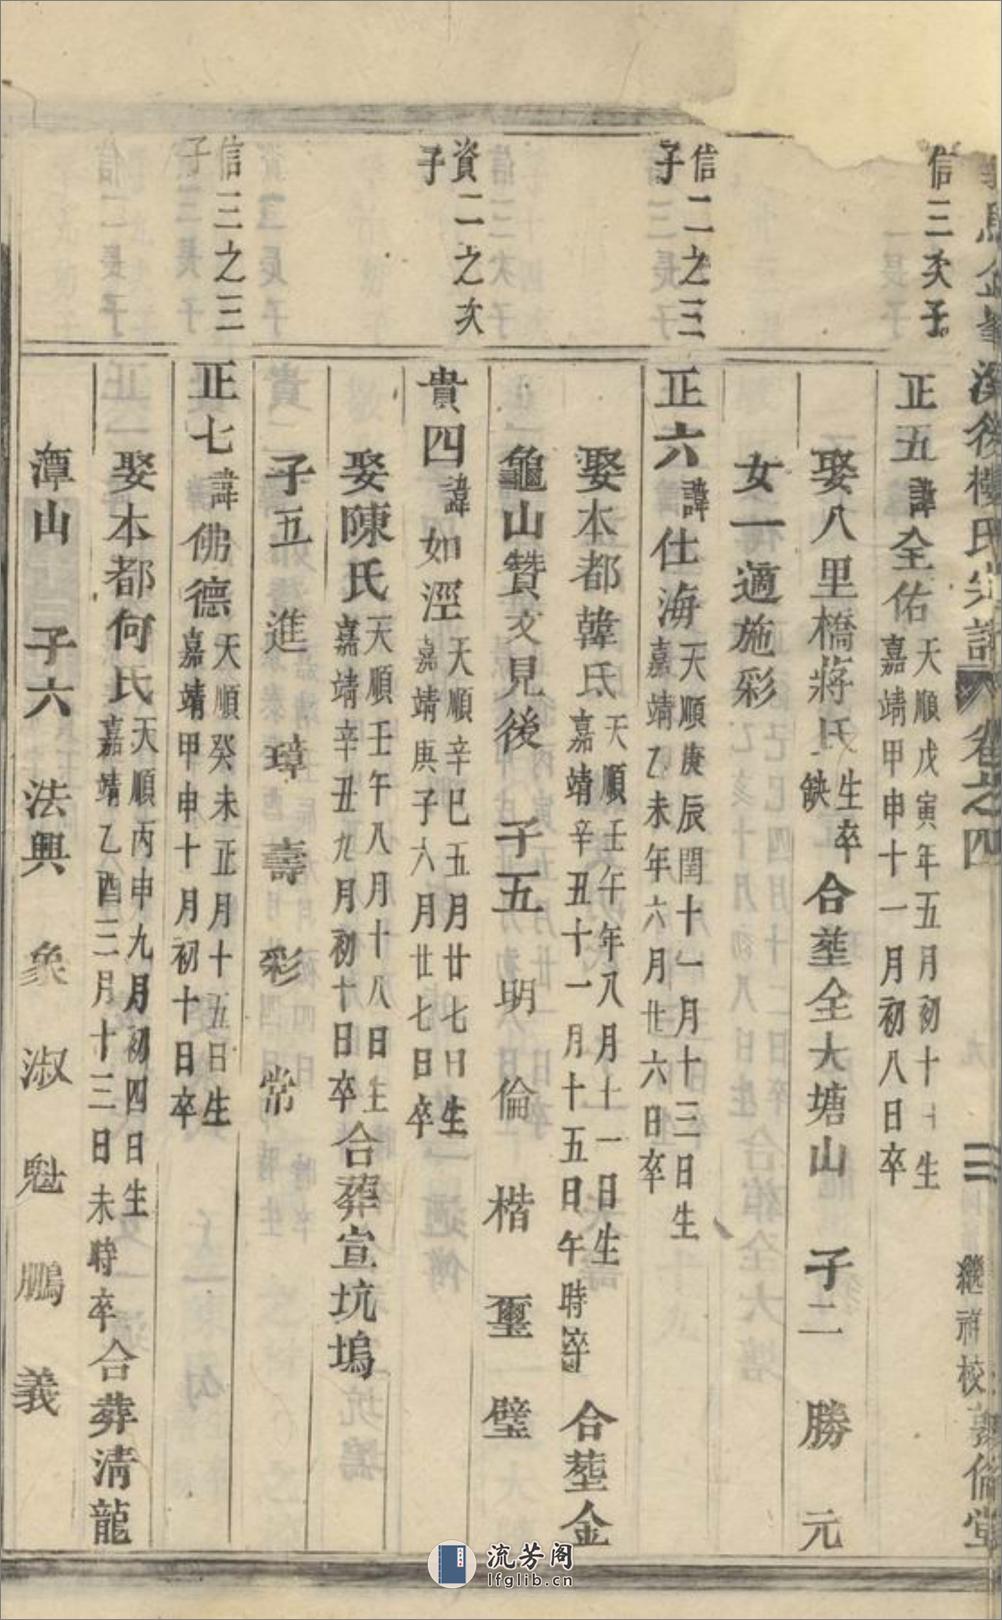 深後樓氏宗譜 卷之四 三 繼祥校 敦倫堂
信三次子
正五 諱 全佑 天順戊寅年五月初十日生 嘉靖甲申十一月初八日卒
娶八里橋蔣氏 生卒缺 合塟全大塘山 子二 勝 元
女一適施彩
信二之三子
正六 諱 仕海 天順庚辰閏十一月十三日生 嘉靖乙未年六月廿六日卒
娶本都韓氏 天順壬午年八月十一日生 嘉靖辛丑十一月十五日午時卒 合塟金
龜山贊文見後 子五 明 倫 楷 璽 璧
資二之次子
貴四 諱 如涇 天順辛巳五月廿七日生 嘉靖庚子六月廿七日卒
娶陳氏 天順壬午八月十八日生 嘉靖辛丑九月初十日卒 合葬宣坑塢
子五 進 璋 壽 彩 常
信三之三子
正七 諱 佛德 天順癸未正月十五日生 嘉靖甲申十月初十日卒
娶本都何氏 天順丙申九月初四日生 嘉靖乙酉三月十三日未時卒 合葬清龍
潭山 子六 法興 象 淑 魁 鵬 義
流芳阁
lfglib.cn